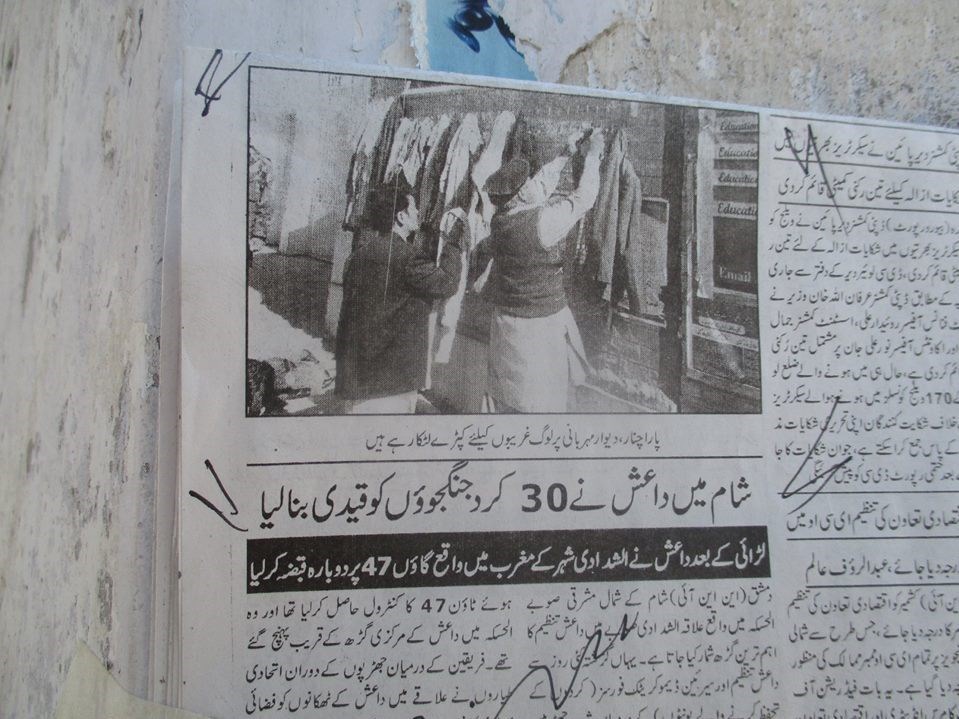 Education
Education
Education
Educati
Email
پاراچنار، دیوار مہربانی پر لوگ غریبوں کیلئے کپڑے لٹکا رہے ہیں
شام میں داعش نے 30 کرد جنگجوؤں کو قیدی بنا لیا
لڑائی کے بعد داعش نے الشدادی شہر کے مغرب میں واقع گاؤں 47 پر دوبارہ قبضہ کر لیا
دمشق (این این آئی) شام کے شمال مشرقی صوبے
الحسکہ میں واقع علاقہ الشدادی میں داعش تنظیم کا
اہم ترین گڑھ شمار کیا جاتا ہے۔ یہاں روز سے
داعش تنظیم اور سیرین ڈیموکریٹک فورسز (کردوں کے
ہوئے ٹاؤن 47 کا کنٹرول حاصل کر لیا تھا اور وہ
الحسکہ میں داعش کے مرکزی گڑھ کے قریب پہنچ گئے
تھے۔ فریقین کے درمیان جھڑپوں کے دوران اتحادی
طیاروں نے علاقے میں داعش کے ٹھکانوں کو فضائی
ڈپٹی کمشنر دیر پائین نے سیکرٹریز میں
شکایات ازالہ کیلئے تین رکنی کمیٹی قائم کر دی
(بیورو رپورٹ) ڈپٹی کمشنر دیر پائین نے ویلج کو
سیکرٹریز بھرتیوں میں شکایات ازالہ کے لئے تین ر
قائم کر دی، ڈی سی لوئر دیر کے دفتر سے جاری
کے مطابق ڈپٹی کمشنر عرفان اللہ خان وزیر نے
فنانس آفیسر روئیدار علی، اسسٹنٹ کمشنر جمال
اور اکاؤنٹس آفیسر نور علی جان پر مشتمل تین رکنی
قائم کر دی ہے، حال ہی میں ہونے والے ضلع لو
170 ویلج کونسلو میں ہونے والے سیکرٹریز
خلاف شکایت کنندگان اپنی تحریری شکایات مذ
کے پاس جمع کرا سکتے ہے، جو ان شکایات کا جا
بعد حتمی رپورٹ ڈی سی کو پیش
اقتصادی تعاون کی تنظیم ای سی او میں
درجہ دیا جائے، عبدالرؤف عالم
آئی) کشمیر کو اقتصادی تعاون کی تنظیم
کا درجہ دیا جائے، جس طرح سے شمالی
تجویز پر تمام ای سی او ممبر ممالک کی منظور
دیا گیا ہے۔ یہ بات فیڈریشن آف